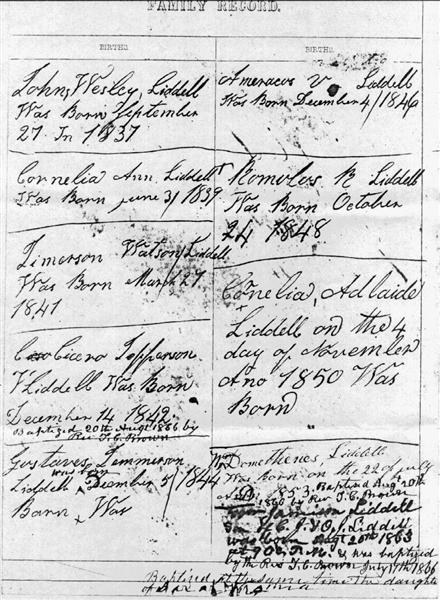 FAMILY RECORD.
BIRTHS.
John, Wesley, Liddell
Was Born September
27. In 1837
Cornelia Ann Liddell
Was Born June 3/1839
Jimerson Watson Liddell
Was Born March 27.
1841
Cicero Jepperson
Liddell Was Born
December 14 1842
Baptized 20th Augt 1886 by
Rev T. C. Brown
Gustaves, Jimmerson
Liddell December 5/1844
Barn Was
BIRTHS.
Americus V Liddell
Was Born December 4/1846
Romolos R Liddell
Was Born October
24 1848
Cornelia, Adlaide
Liddell on the 4
day of November
Ano 1850 Was
Born
Domethenes Liddell
Was Born on the 22 of July
1853, Baptized Augt 20th
by Rev T. C. Brown
Liddell
Liddell
was born Augt 20th 1863
at 9 o'c, P.M. & was baptized
by the Rev T. C. Brown July 17th 1866
Baptized at the same time the daughter
of